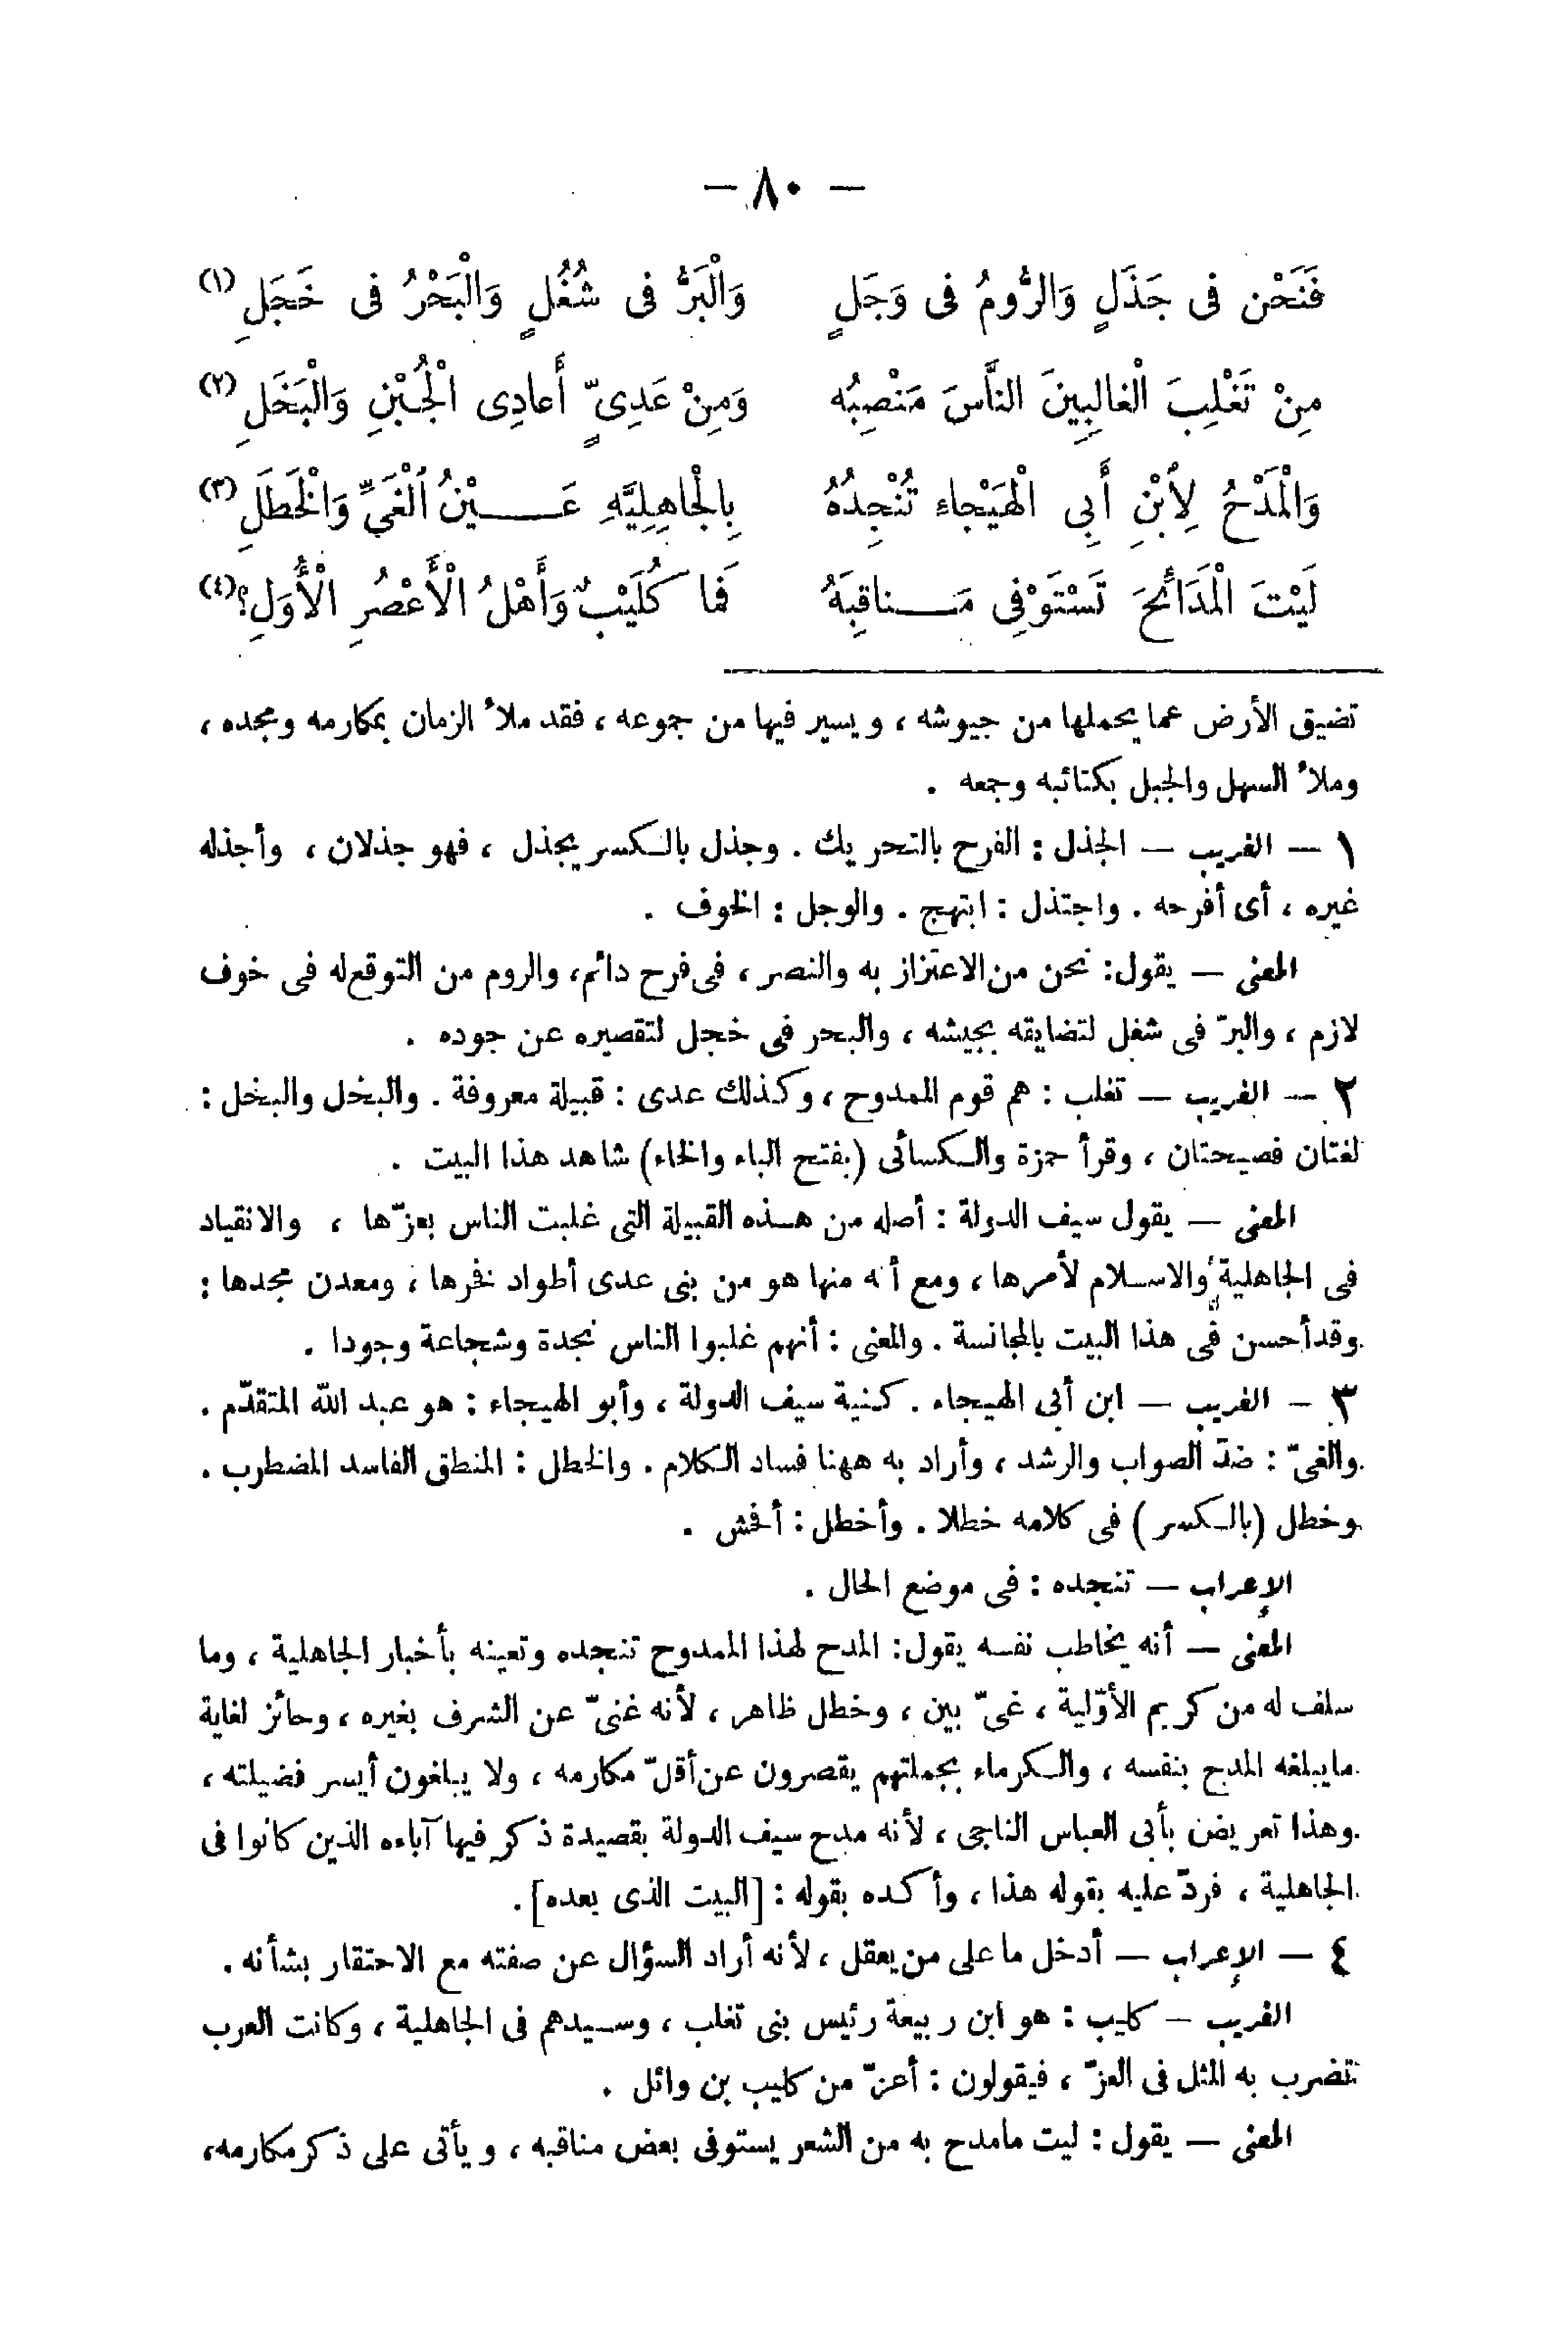 — ٨٠ —
فَنَحْن فى جَذَلٍ وَالرُّومُ فى وَجَلٍ وَالْبَرُّ فى شُغُلٍ وَالْبَحْرُ فى خَجَلِ (١)
مِنْ تَغْلِبَ الْغالِبِينَ النَّاسَ مَنْصِبُه وَمِنْ عَدِىٍّ أَعادِى الْجُبْنِ وَالْبَخَلِ (٢)
وَالْمَدْحُ لِأَبْنِ أَبِى الْهَيْجاء تُنْجِدُهُ بِالْجاهِلِيَّهِ عَـــيْنُ الْغَىِّ وَالْخَطَلِ (٣)
لَيْتَ الْمَدَائِحَ تَسْتَوْفِى مَـــناقِبَهُ فَمَا كُلَيْبٌ وَأَهْلُ الْأَعْصُرِ الْأُوَلِ؟ (٤)
تضيق الأرض عما يحملها من جيوشه ، ويسير فيها من جموعه ، فقد ملأ الزمان بمكارمه ومجده ،
وملأ السهل والجبل بكتائبه وجمعه .
١ — الغريب — الجذل : الفرح بالتحريك . وجذل بالكسر يجذل ، فهو جذلان ، وأجذله
غيره ، أى أفرحه . واجتذل : ابتهج . والوجل : الخوف .
المعنى — يقول : نحن من الاعتزاز به والنصر ، فى فرح دائم ، والروم من التوقع له فى خوف
لازم ، والبرّ فى شغل لتضايقه بجيشه ، والبحر فى خجل لتقصيره عن جوده .
٢ — الغريب — تغلب : هم قوم الممدوح ، وكذلك عدى : قبيلة معروفة . والبخل والبخل :
لغتان فصيحتان ، وقرأ حمزة والكسائى (بفتح الباء والخاء) شاهد هذا البيت .
المعنى — يقول سيف الدولة : أصله من هذه القبيلة التى غلبت الناس بعزّها ، والانقياد
فى الجاهلية والاسلام لأمرها ، ومع أنه منها هو من بنى عدى أطواد فخرها ، ومعدن مجدها :
وقد أحسن فى هذا البيت بالمجانسة . والمعنى : أنهم غلبوا الناس نجدة وشجاعة وجودا .
٣ - الغريب — ابن أبى الهيجاء . كنية سيف الدولة ، وأبو الهيجاء : هو عبد الله المتقدّم .
والغىّ : ضدّ الصواب والرشد ، وأراد به ههنا فساد الكلام . والخطل : المنطق الفاسد المضطرب .
وخطل (بالكسر) فى كلامه خطلا . وأخطل : أفحش .
الإعراب — تنجده : فى موضع الحال .
المعنى — أنه يخاطب نفسه يقول : المدح لهذا الممدوح تنجده وتعينه بأخبار الجاهلية ، وما
سلف له من كريم الأوّلية ، غىّ بين ، وخطل ظاهر ، لأنه غنىّ عن الشرف بغيره ، وحائز لغاية
مايبلغه المدح بنفسه ، والكرماء بجملتهم يقصرون عن أقلّ مكارمه ، ولا يبلغون أيسر فضيلته ،
وهذا تعريض بأبى العباس الناجى ، لأنه مدح سيف الدولة بقصيدة ذكر فيها آباءه الذين كانوا فى
الجاهلية ، فردّ عليه بقوله هذا ، وأكده بقوله : [البيت الذى بعده] .
٤ — الإعراب — أدخل ما على من يعقل ، لأنه أراد السؤال عن صفته مع الاحتقار بشأنه .
الغريب — كليب : هو ابن ربيعة رئيس بنى تغلب ، وسيدهم فى الجاهلية ، وكانت العرب
تضرب به المثل فى العزّ ، فيقولون : أعزّ من كليب بن وائل .
المعنى — يقول : ليت مامدح به من الشعر يستوفى بعض مناقبه ، ويأتى على ذكر مكارمه،